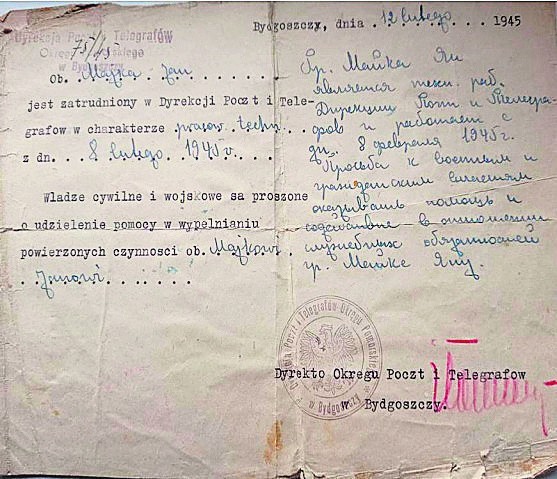 Bydgoszczy, dnia . 12 lutego . . . . 1945
Dyrekcja Poczt i Telegrafów
Okręgu Pomorskiego
w Bydgoszczy
75/45
Ob. . Majka Jan . . . . . .
jest zatrudniony w Dyrekcji Poczt i Tele-
grafow w charakterze pracow. techn.
z dn. . . 8 lutego 1945 r. . .
Wladze cywilne i wojskowe sa proszone
o udzielenie pomocy w wypelnianiu
powierzonych czynnosci ob. Majkowi .
. . Janowi . . . . . . .
Гр. Майка Ян
является техн. раб.
Дирекции Почт и Телегра-
фов и работает с
дн. 8 февраля 1945 г.
Просьба к военным и
гражданским властям
оказывать помощь и
содействие в отношении
служебных обязанностей
гр. Майке Яну.
Dyrekcja Poczt i Telegrafów Okręgu Pomorskiego
w Bydgoszczy
Dyrekto Okregu Poczt i Telegrafow
w Bydgoszczy.